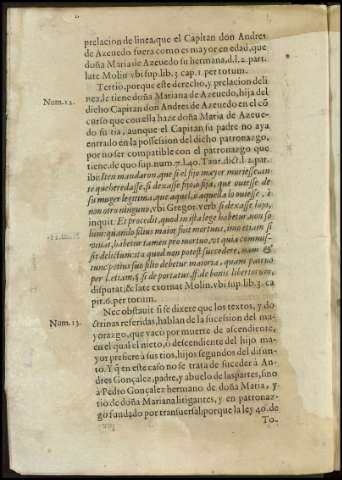 prelacion de linea, que el Capitan don Andres
de Azeuedo fuera como es mayor en edad, que
doña Maria de Azeuedo su hermana, d.l.2. part.
late Molin. vbi sup. lib. 3. cap. 1. per totum.
Tertio, porque este derecho, y prelacion de li
Num. 12.
nea, le tiene doña Mariana de Azeuedo, hija del
dicho Capitan don Andres de Azeuedo en el cõ
curso que con ella haze doña Maria de Azeue-
do su tia, aunque el Capitan su padre no aya
entrado en la possession del dicho patronazgo,
por no ser compatible con el patronazgo que
tiene, de quo sup. num. 7. l. 40. Taur. dict. l. 2. par.
ibi: Iten mandaron, que si el fijo mayor muriesse, an-
te que heredasse, si dexasse fijo, o fija, que ouiesse de
su muger legitima, que aquel, o aquella lo ouiesse, è
non otro ninguno, vbi Gregor. verb. si dexasse fijo,
inquit. Et procedit, quod in ista lege habetur, non so
lum: quando filius maior, fuit mortuus, imo etiam si
viuat, habetur tamen pro mortuo, vt quia commis-
sit delictum: ita quod non potest succedere, nam &
tunc potius suo filio debetur maioria, quam patruo
per l. etiam, § si de portatus, ff. de bonis libertorum,
disputat, & late exornat Molin. vbi sup. lib. 3. ca
pit. 6. per totum.
Nec obstauit si se dixere que los textos, y do
Num. 13.
ctrinas referidas, hablan de la sucession del ma-
yorazgo, que vacò por muerte de ascendiente,
en el qual el nieto, ò descendiente del hijo ma-
yor prefiere à sus tios, hijos segundos del difun-
to. Y q̃ en este caso no se trata de suceder à An-
dres Gonçalez, padre, y abuelo de las partes, sino
à Pedro Gonçalez hermano de doña Maria, y
tio de doña Mariana litigantes, y en patronaz-
go fundado por transuersal, porque la ley 40. de
To-